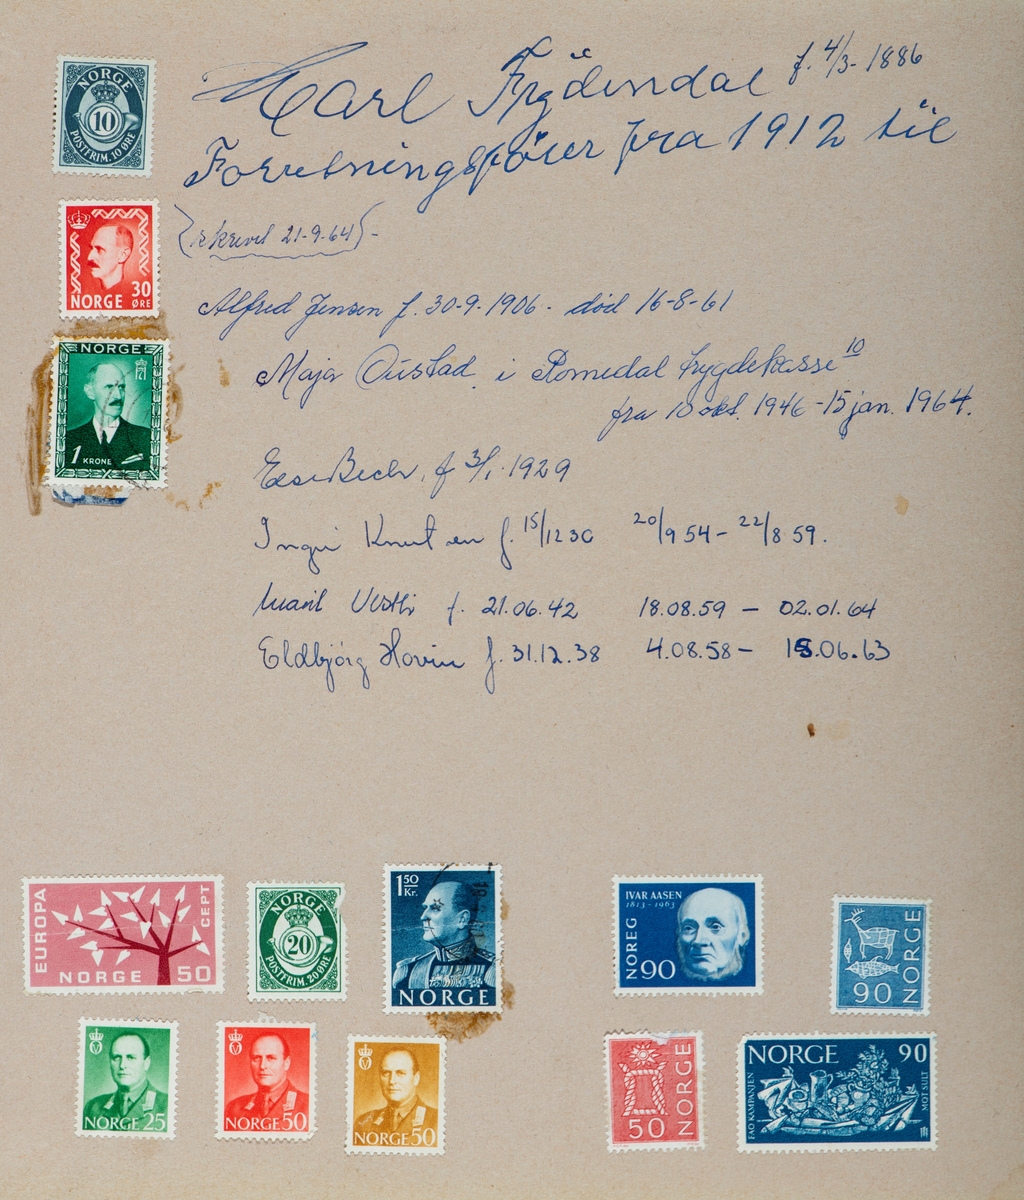 NORGE
10
POSTFRIM. 10 ØRE
Carl Frydendal f. 4/3-1886
Forretningsfører fra 1912 til
(skrevet 21-9-64)-
NORGE 30 ØRE
Alfred Jensen f. 30-9-1906- död 16-8-61
NORGE
1 KRONE
Maja Oustad i Romedal trygdekasse
fra 10 okt. 1946-15 jan. 1964.
Else Bech, f 3/1-1929
f. 15/12 30 20/9 54- 22/8 59.
Marit f. 21.06.42 18.08.59 - 02.01.64
Eldbjörg Hovin f. 31.12.38 4.08.58- 15.06.63
EUROPA
CEPT
NORGE 50
NORGE
20
POSTFRIM. 20 ØRE
1 50 Kr.
NORGE
IVAR AASEN
1813-1963
NOREG
90
90
NORGE
NORGE 25
NORGE 50
NORGE 50
50
NORGE
NORGE 90
FAO KAMPANJEN
MOT SULT